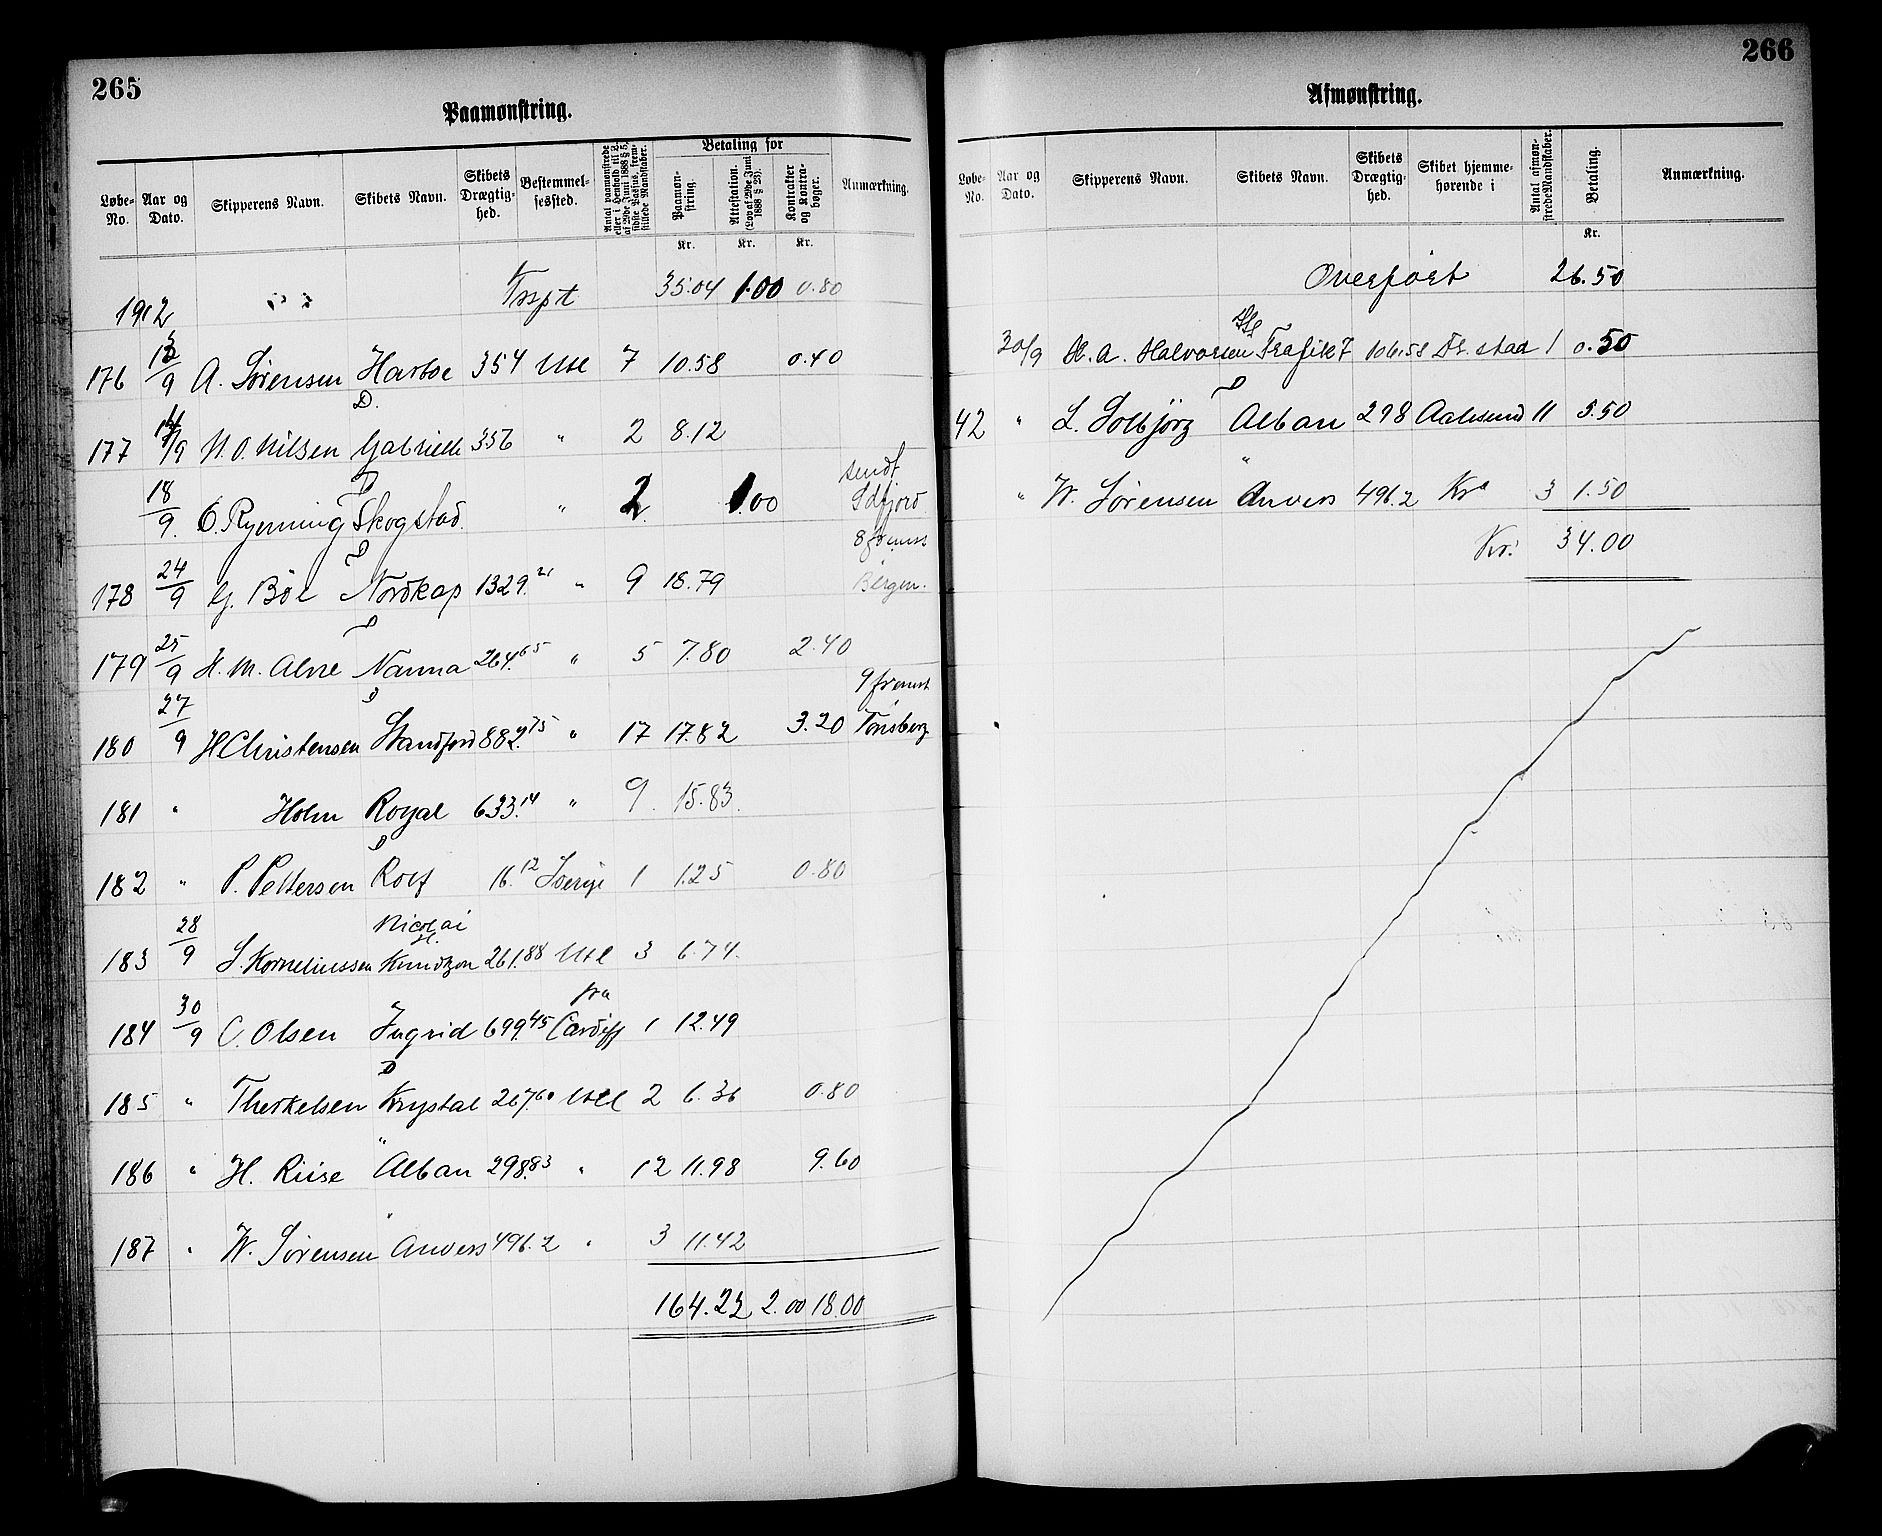 265
Paamønstring.
Løbe-No. Aar og Dato. Skipperens Navn. Skibets Navn. Skibets Drægtighed. Bestemmelsessted. Antal paamønstrede eller i Henhold til L. af 29de Juni 1888 § 5, sidste Passus, fremstillede Mandskaber. Betaling for Paamønstring. Attestation. (Lov af 29de Juni 1888 § 23). Kontrakter og Kontrabøger. Anmærkning.
Kr. Kr. Kr.
1912 Trspt 35.04 1.00 0.80
176 13/9 A. Sørensen Harboe 354 Utl 7 10.58 0.40
D.
177 14/9 N.O. Nilsen Gabrielle 356 " 2 8.12
D sendt
18/9 O. Ryenning Skogstad " 2 1.00 Idfjord
D 8 fremst
178 24/9 G. Böe Nordkap 1329.21 " 9 18.79 Bergen.
D
179 25/9 H. M. Alne Nanna 264.65 " 5 7.80 2.40
D 9 fremst
180 27/9 H Christensen Standford 882.75 " 17 17.82 3.20 Tønsberg
181 " Holm Royal 633.14 " 9 15.83
D
182 " P. Pettersen Rolf 16.12 Sverige 1 1.25 0.80
Nicolai
H.
183 28/9 S. Korneliussen Knudtzon 261.88 Utl 3 6.74
fra
184 30/9 C. Olsen Ingrid 699.45 Cardiff 1 12.49
D
185 " Therkelsen Krystal 267.60 Utl 2 6.36 0.80
"
186 " H. Riise Alban 298.83 " 12 11.98 9.60
"
187 " W. Sørensen Anvers 496.2 " 3 11.42
164.22 2.00 18.00
266
Afmønstring.
Løbe-No. Aar og Dato. Skipperens Navn. Skibets Navn. Skibets Drægtighed. Skibet hjemmehørende i Antal afmønstrede Mandskaber. Betaling. Anmærkning.
Kr.
Overført 26.50
30/9 H. A. Halvorsen Trafik 7 106.58 Fr.stad 1 0.50
D
42 " L. Solbjørg Alban 298 Aalesund 11 5.50
"
" W. Sørensen Anvers 496.2 Kra 3 1.50
Kr. 34.00